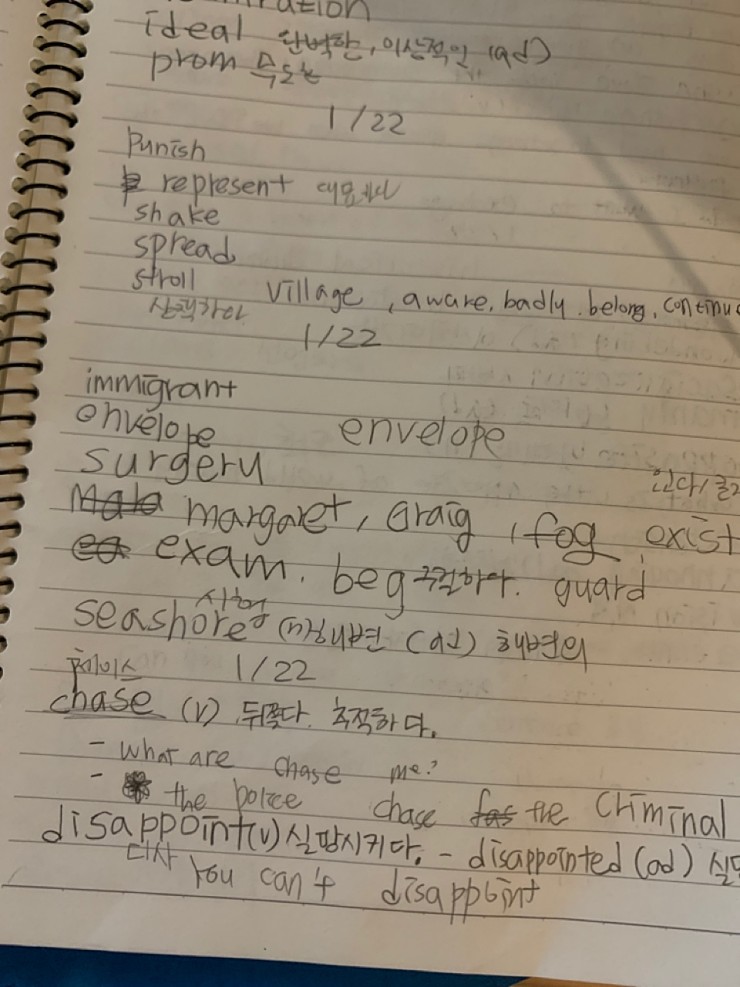 ration
ideal 단벽한, 이상적인 (ad)
prom
1/22
Punish
represent
shake
spread
stroll village, aware, badly, belong, continu
산책하다
1/22
immigrant
envelope envelope
surgery
margaret, Graig, fog, exist
exam. beg 구걸하다. guard
시험
seashore (n) 해변 (ad) 해변의
1/22
chase (v) 뒤쫓다. 추적하다.
- What are chase me?
- the police chase the Criminal
disappoint (v) 실망시키다. - disappointed (ad) 실
You can't disappoint